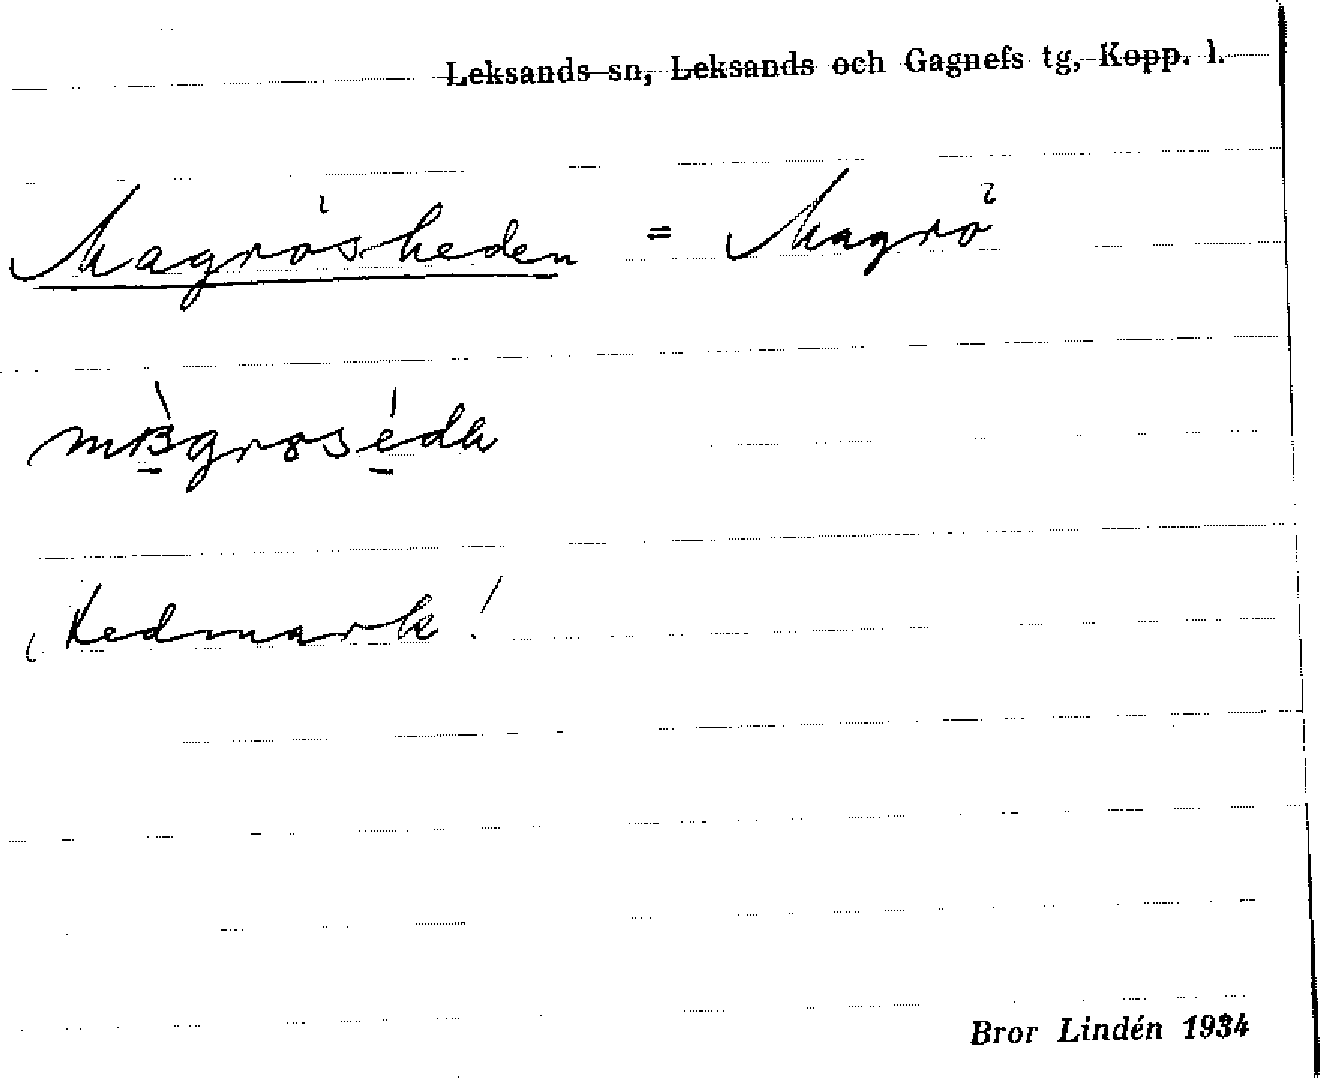 Leksands sn, Leksands och Gagnefs tg, Kopp. l.
Magrösheden = Magrö
Hedmark!
Bror Lindén 1934